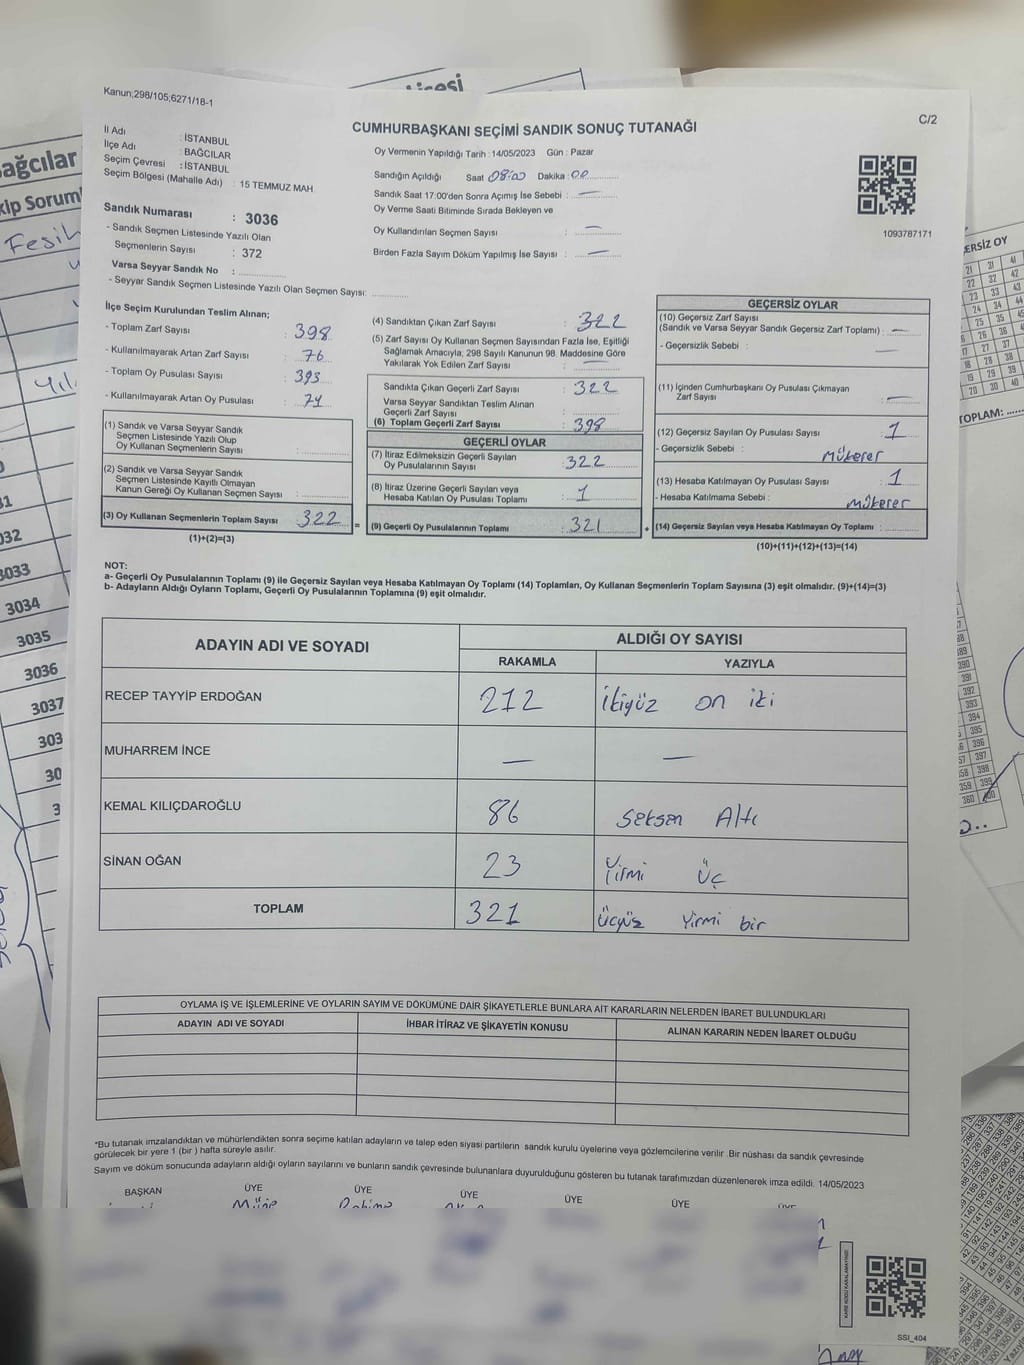 Kanun;298/105;6271/18-1
C/2
CUMHURBAŞKANI SEÇİMİ SANDIK SONUÇ TUTANAĞI
İl Adı : İSTANBUL
İlçe Adı : BAĞCILAR
Seçim Çevresi : İSTANBUL
Seçim Bölgesi (Mahalle Adı) : 15 TEMMUZ MAH
Sandık Numarası : 3036
- Sandık Seçmen Listesinde Yazılı Olan
Seçmenlerin Sayısı : 372
Varsa Seyyar Sandık No :
- Seyyar Sandık Seçmen Listesinde Yazılı Olan Seçmen Sayısı:
Oy Vermenin Yapıldığı Tarih : 14/05/2023 Gün : Pazar
Sandığın Açıldığı Saat 08:00 Dakika : 00
Sandık Saat 17:00'den Sonra Açımış İse Sebebi : —
Oy Verme Saati Bitiminde Sırada Bekleyen ve
Oy Kullandırılan Seçmen Sayısı : —
Birden Fazla Sayım Döküm Yapılmış İse Sayısı : —
1093787171
İlçe Seçim Kurulundan Teslim Alınan;
- Toplam Zarf Sayısı : 398
- Kullanılmayarak Artan Zarf Sayısı : 76
- Toplam Oy Pusulası Sayısı : 393
- Kullanılmayarak Artan Oy Pusulası : 71
(1) Sandık ve Varsa Seyyar Sandık
Seçmen Listesinde Yazılı Olup
Oy Kullanan Seçmenlerin Sayısı :
(2) Sandık ve Varsa Seyyar Sandık
Seçmen Listesinde Kayıtlı Olmayan
Kanun Gereği Oy Kullanan Seçmen Sayısı :
(3) Oy Kullanan Seçmenlerin Toplam Sayısı 322
(1)+(2)=(3)
=
(4) Sandıktan Çıkan Zarf Sayısı : 322
(5) Zarf Sayısı Oy Kullanan Seçmen Sayısından Fazla İse, Eşitliği
Sağlamak Amacıyla, 298 Sayılı Kanunun 98. Maddesine Göre
Yakılarak Yok Edilen Zarf Sayısı : —
Sandıkta Çıkan Geçerli Zarf Sayısı : 322
Varsa Seyyar Sandıktan Teslim Alınan
Geçerli Zarf Sayısı :
(6) Toplam Geçerli Zarf Sayısı : 398
GEÇERLİ OYLAR
(7) İtiraz Edilmeksizin Geçerli Sayılan
Oy Pusulalarının Sayısı : 322
(8) İtiraz Üzerine Geçerli Sayılan veya
Hesaba Katılan Oy Pusulası Toplamı : 1
(9) Geçerli Oy Pusulalarının Toplamı : 321
+
GEÇERSİZ OYLAR
(10) Geçersiz Zarf Sayısı
(Sandık ve Varsa Seyyar Sandık Geçersiz Zarf Toplamı) : —
- Geçersizlik Sebebi : —
(11) İçinden Cumhurbaşkanı Oy Pusulası Çıkmayan
Zarf Sayısı : —
(12) Geçersiz Sayılan Oy Pusulası Sayısı : 1
- Geçersizlik Sebebi : Mükerer
(13) Hesaba Katılmayan Oy Pusulası Sayısı : 1
- Hesaba Katılmama Sebebi : mükerer
(14) Geçersiz Sayılan veya Hesaba Katılmayan Oy Toplamı :
(10)+(11)+(12)+(13)=(14)
NOT:
a- Geçerli Oy Pusulalarının Toplamı (9) ile Geçersiz Sayılan veya Hesaba Katılmayan Oy Toplamı (14) Toplamları, Oy Kullanan Seçmenlerin Toplam Sayısına (3) eşit olmalıdır. (9)+(14)=(3)
b- Adayların Aldığı Oyların Toplamı, Geçerli Oy Pusulalarının Toplamına (9) eşit olmalıdır.
ADAYIN ADI VE SOYADI
ALDIĞI OY SAYISI
RAKAMLA YAZIYLA
RECEP TAYYİP ERDOĞAN 212 İkiyüz on iki
MUHARREM İNCE — —
KEMAL KILIÇDAROĞLU 86 Seksen Altı
SİNAN OĞAN 23 Yirmi Üç
TOPLAM 321 Üçyüz Yirmi bir
OYLAMA İŞ VE İŞLEMLERİNE VE OYLARIN SAYIM VE DÖKÜMÜNE DAİR ŞİKAYETLERLE BUNLARA AİT KARARLARIN NELERDEN İBARET BULUNDUKLARI
ADAYIN ADI VE SOYADI İHBAR İTİRAZ VE ŞİKAYETİN KONUSU ALINAN KARARIN NEDEN İBARET OLDUĞU
*Bu tutanak imzalandıktan ve mühürlendikten sonra seçime katılan adayların ve talep eden siyasi partilerin sandık kurulu üyelerine veya gözlemcilerine verilir .Bir nüshası da sandık çevresinde
görülecek bir yere 1 (bir ) hafta süreyle asılır.
Sayım ve döküm sonucunda adayların aldığı oyların sayılarını ve bunların sandık çevresinde bulunanlara duyurulduğunu gösteren bu tutanak tarafımızdan düzenlenerek imza edildi. 14/05/2023
BAŞKAN ÜYE ÜYE ÜYE ÜYE ÜYE ÜYE
SSI_404
ağcılar
3033
3034
3035
3036
3037
TOPLAM: